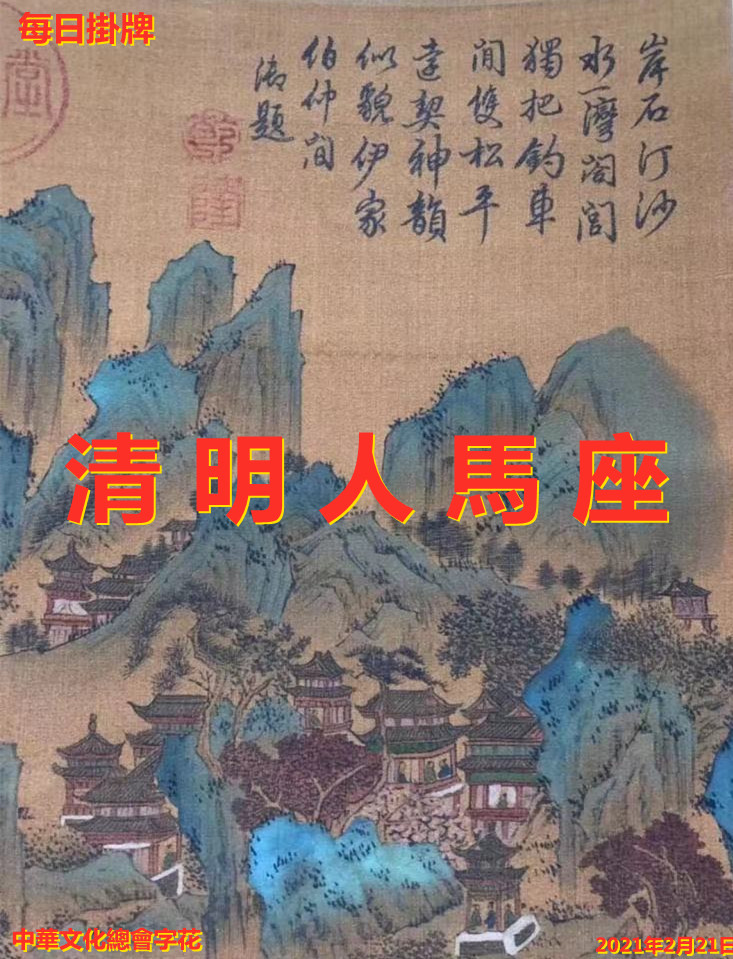 每日掛牌
堂
岸石汀沙
水一灣
獨把釣車
間雙松平
遠契神韻
似貌伊家
伯仲間
御題
清明人馬座
中華文化總會字花
2021年2月21日